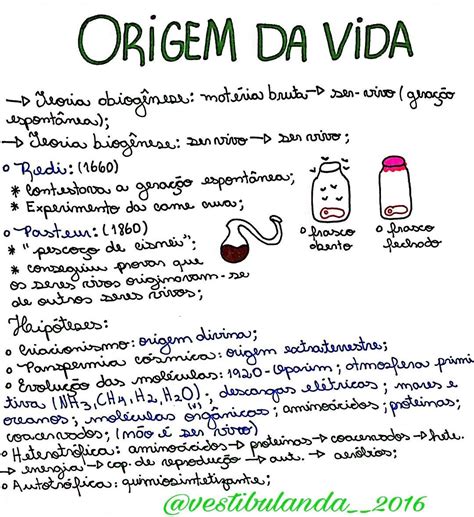 ORIGEM DA VIDA
→ Teoria abiogênese: matéria bruta → ser-vivo (geração
espontânea);
→ Teoria biogênese: ser vivo → ser vivo;
° Redi: (1660)
* Contestava a geração espontânea;
* Experimento da carne crua;
° Pasteur: (1860)
* "pescoço de cisnei";
* conseguiu provar que
os seres vivos originavam-se
de outros seres vivos;
° frasco
aberto
° frasco
fechado
Haipóteses:
° Criacionismo: origem divina;
° Panspermia cósmica: origem extraterrestre;
° Evolução das moléculas: 1920-Oparim; atmosfera primi
tiva (NH3, CH4, H2, H2O); descargas elétricas; mares e
oceanos; moléculas orgânicas; aminoácidos; proteínas;
coacervados; (não é ser vivo)
° Heterotrófica: aminoácidos → proteínas → coacervados → hete.
→ energia! → cap. de reprodução → aut. → aeróbios;
° Autotrófica: quimiosintetizante;
@vestibulanda__2016